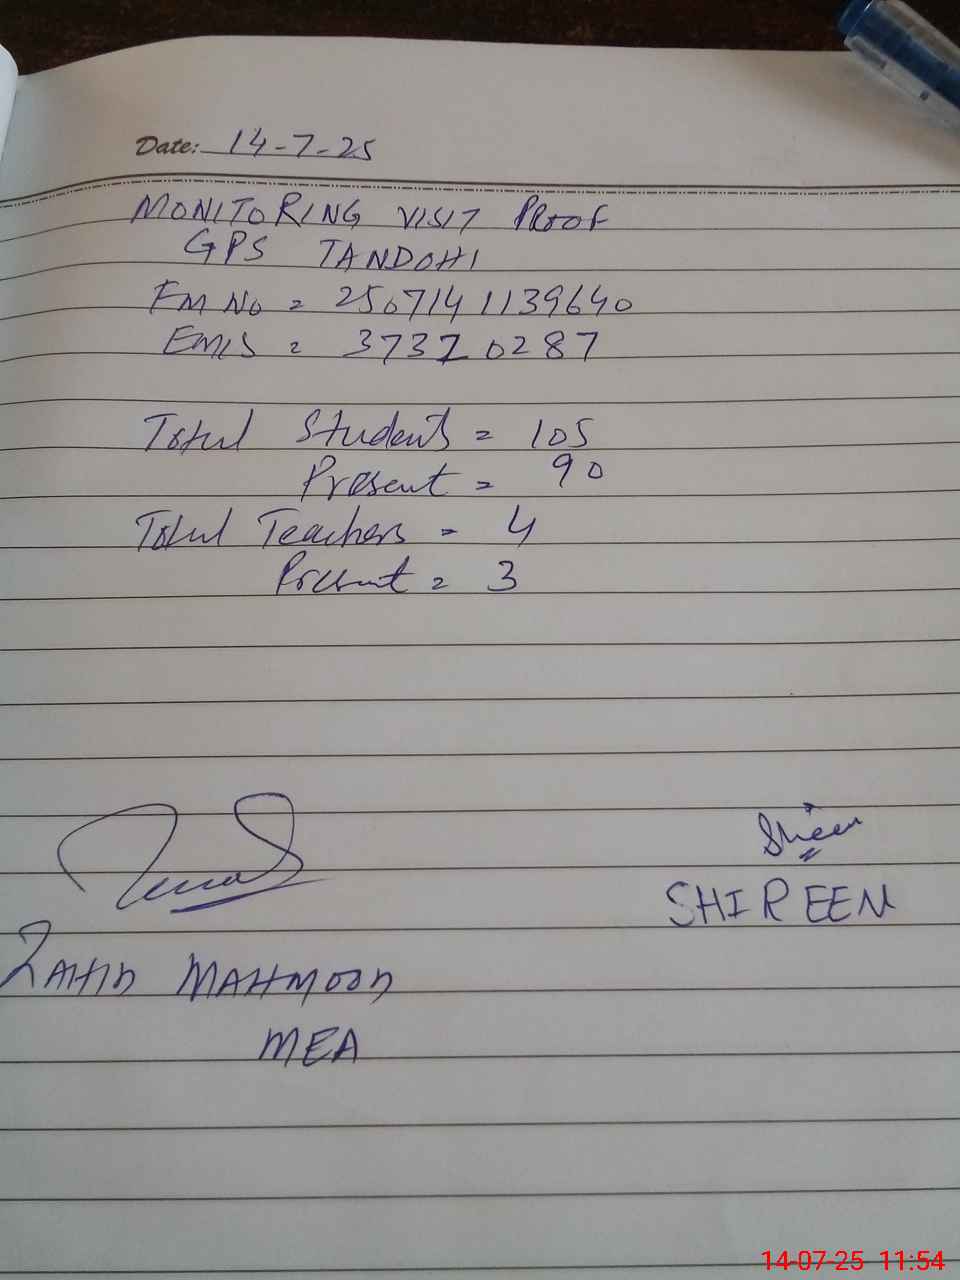 Date: 14-7-25
MONITORING VISIT PROOF
GPS TANDOHI
FM No = 2507141139640
EMIS = 37310287
Total Students = 105
Present = 90
Total Teachers = 4
Present = 3
Shireen
SHIREEN
ZAHID MAHMOOD
MEA
14-07-25 11:54